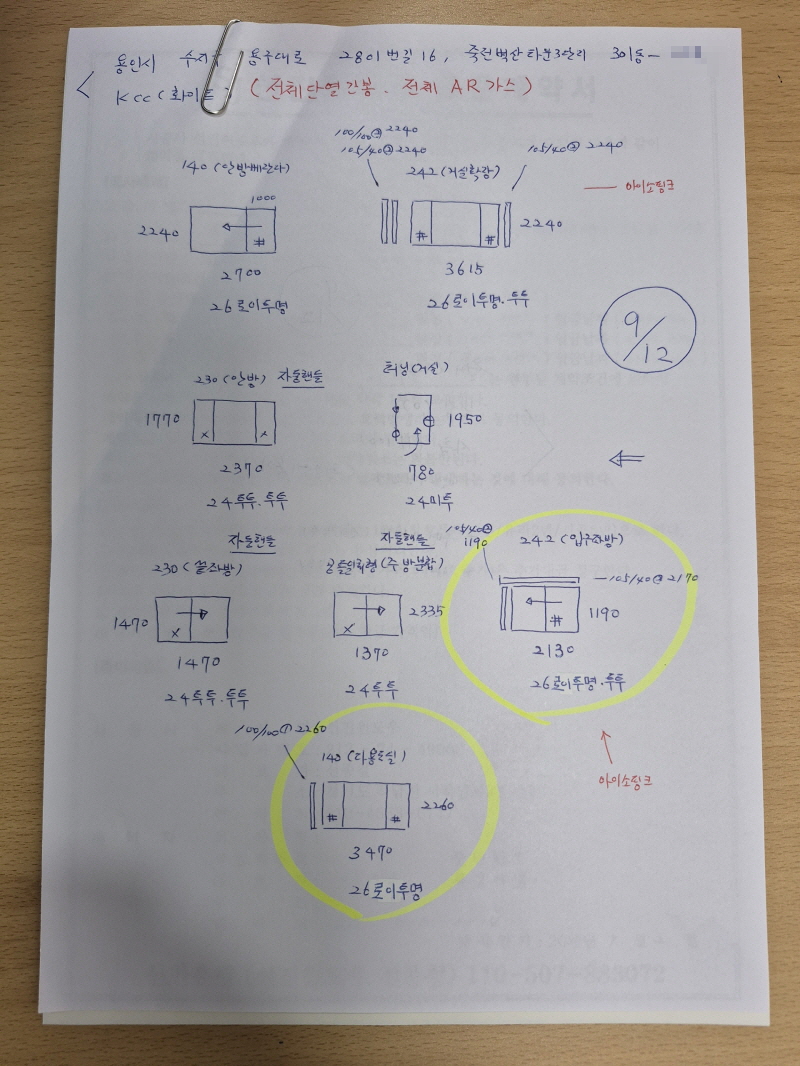 용인시 수지구 용구대로 2801번길 16, 죽전벽산타운3단지 301동-
KCC (화이트) (전체단열간봉. 전체 AR가스)
100/100② 2240
105/40② 2240
105/40② 2240
140 (안방베란다)
242 (거실확장)
아이소핑크
1000
2240
#
# #
2240
2700
3615
26로이투명
26로이투명.투투
9/12
230 (안방) 자동핸들
터닝(거실)
1770
x x
1950
2370
780
24투투.투투
24미투
자동핸들
자동핸들
105/40②
1190
242 (입구작방)
230 (끝작방)
공틀일체형 (주방분합)
105/40② 2170
1470
x
x
2335
#
1190
1470
1370
2130
24투투.투투
24투투
26로이투명.투투
100/100① 2260
140 (다용도실)
아이소핑크
# #
2260
3470
26로이투명